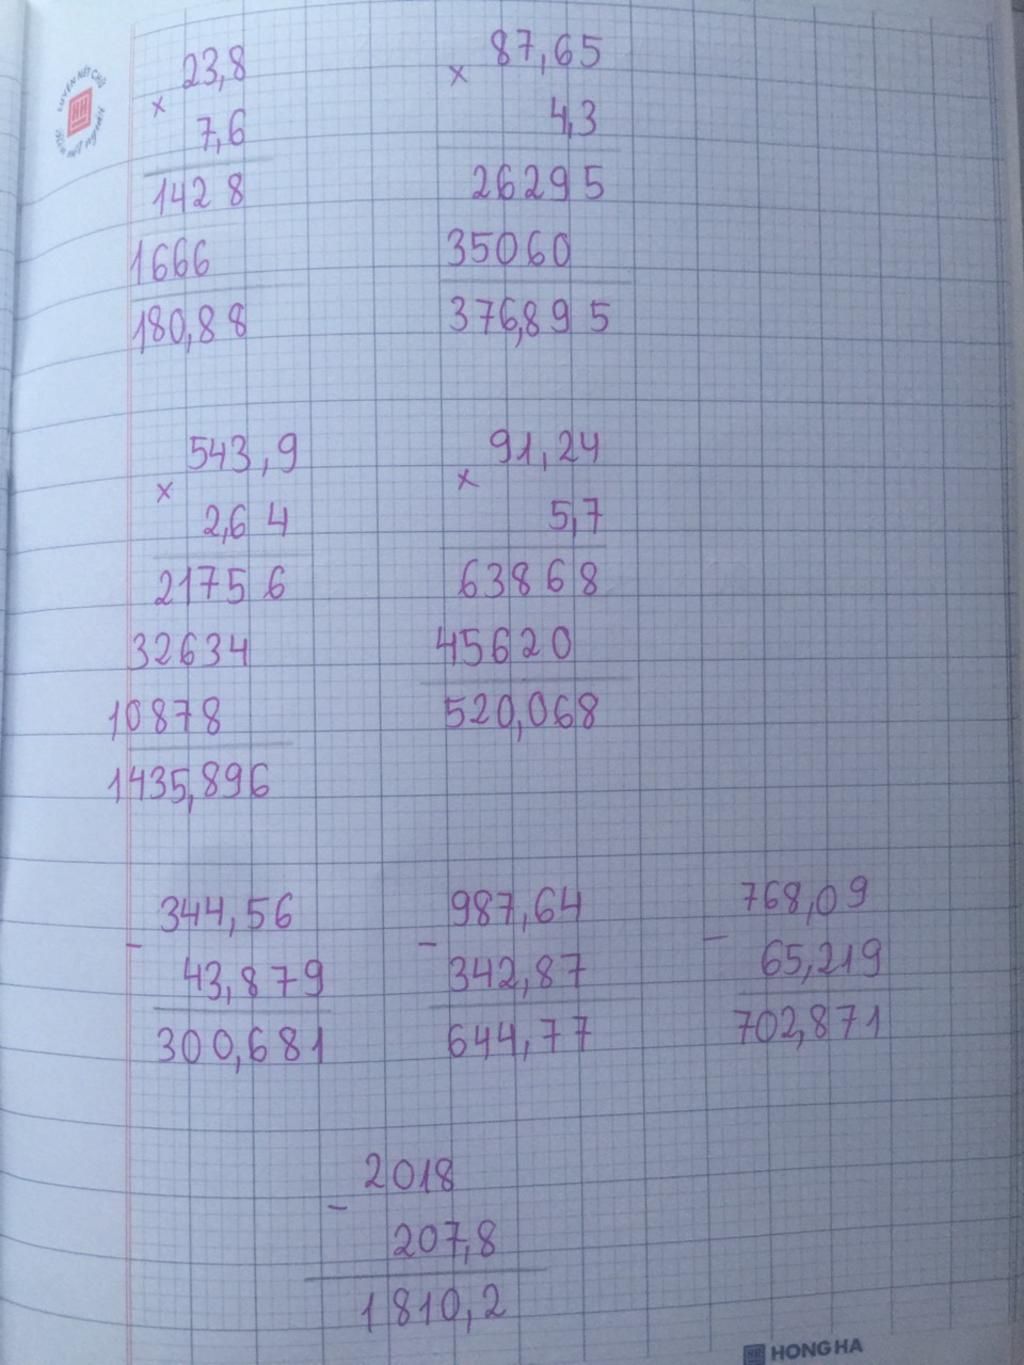 23,8
×
7,6
1428
1666
180,88
87,65
×
4,3
26295
35060
376,895
543,9
×
2,64
21756
32634
10878
1435,896
91,24
×
5,7
63868
45620
520,068
344,56
-
43,879
300,681
987,64
-
342,87
644,77
768,09
-
65,219
702,871
2018
-
207,8
1810,2
HONG HA